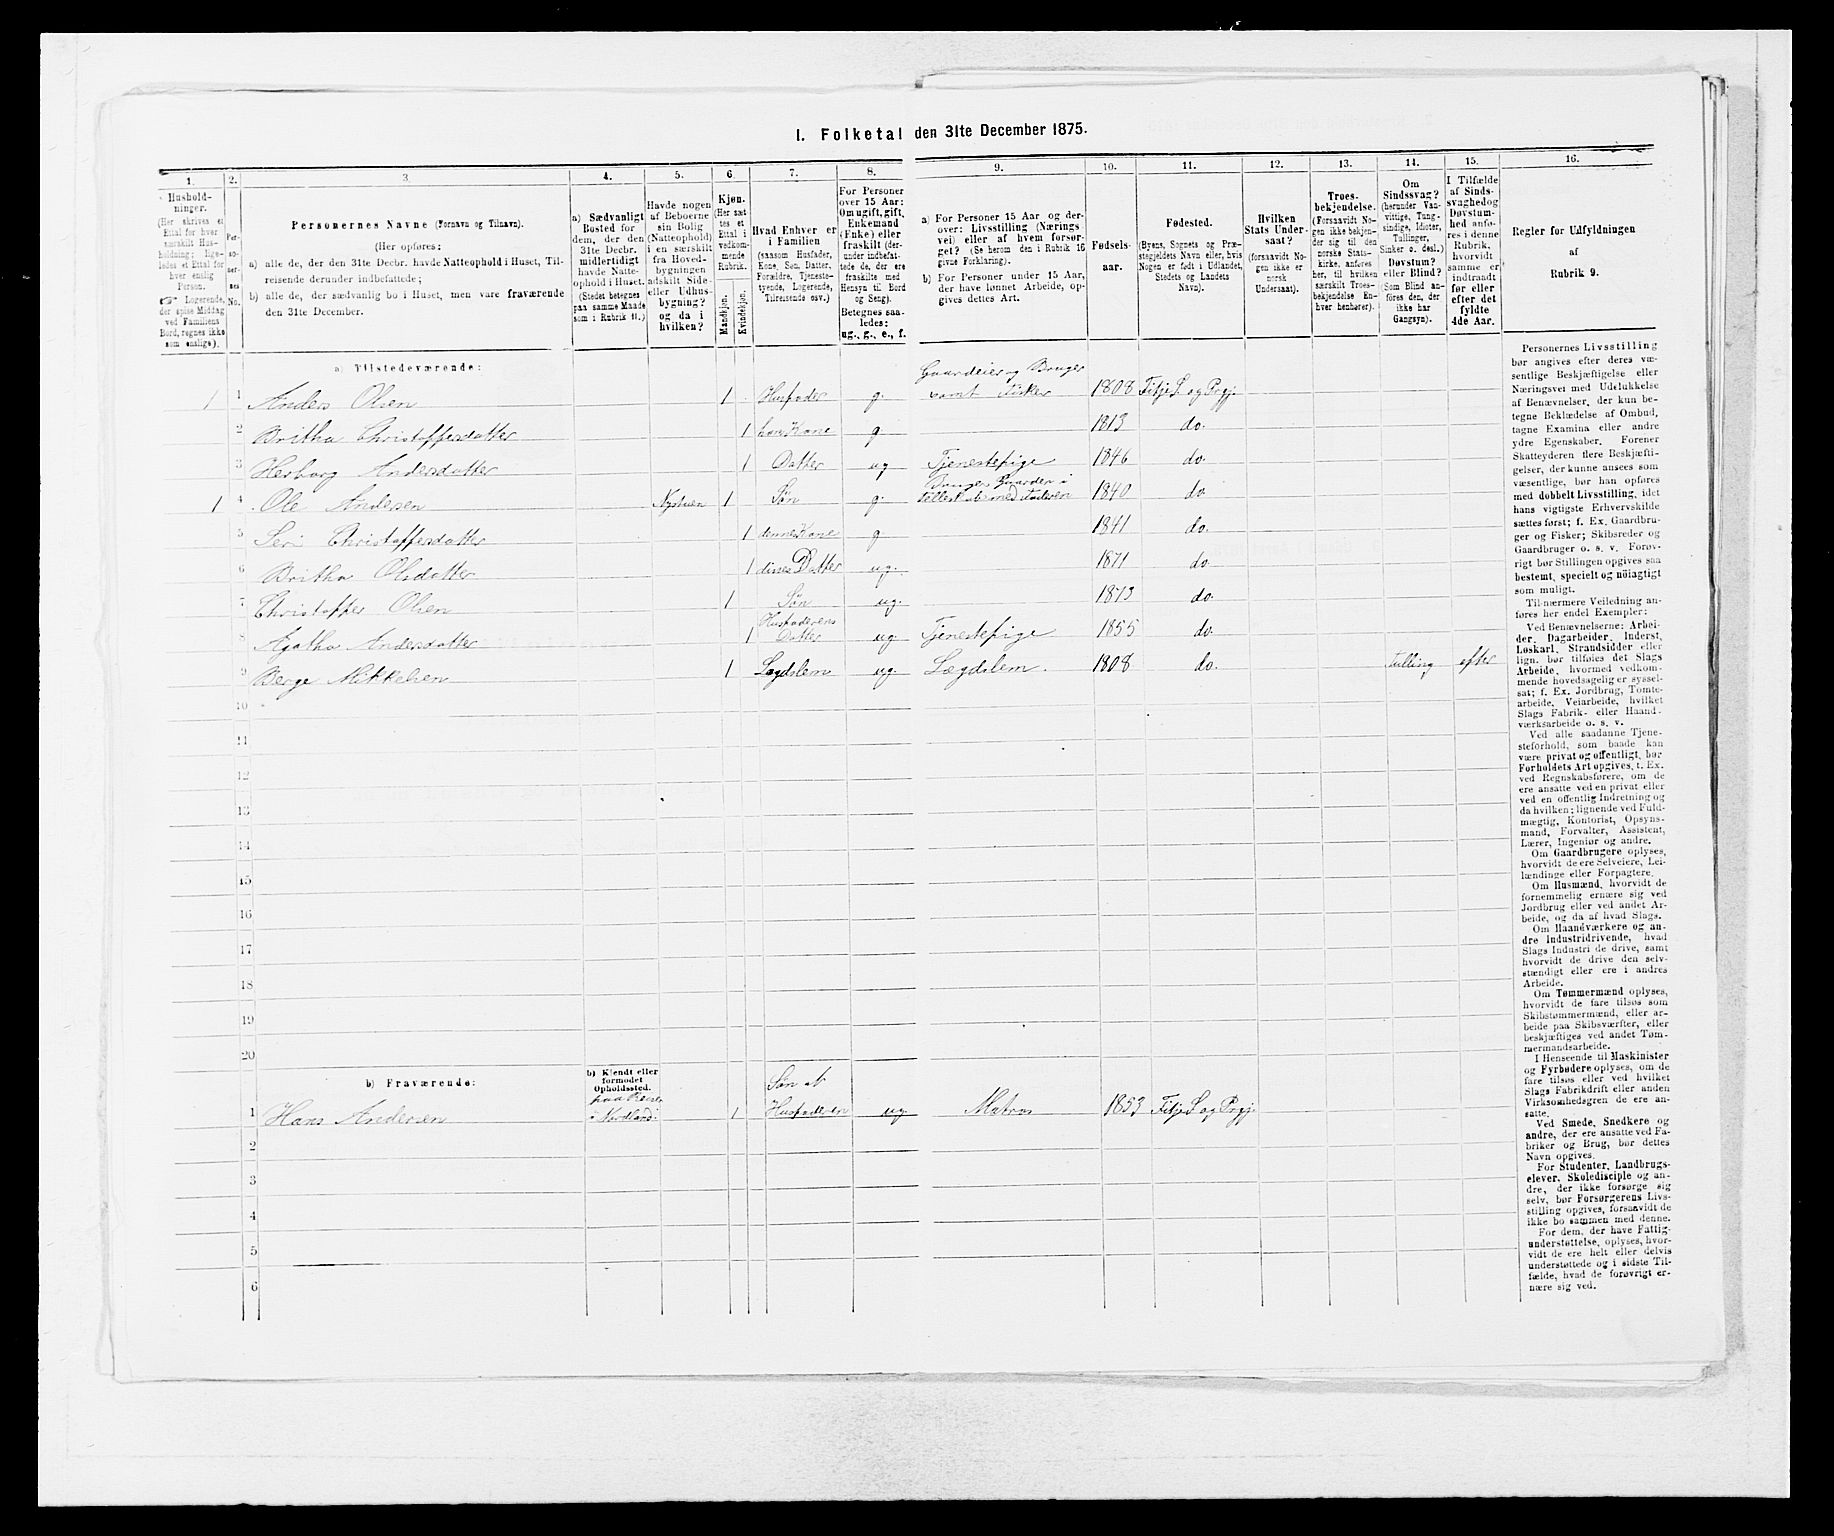 I. Folketal den 31te December 1875.
1.
2.
3.
4.
5.
6.
7.
8.
9.
10.
11.
12.
13.
14.
15.
16.
Hushold-
ninger.
(Her skrives et
Ettal for hver
særskilt Hus-
holdning; lige-
ledes et Ettal for
hver enslig
Person.
☞ Logerende,
der spise Middag
ved Familiens
Bord, regnes ikke
som enslige).
Per-
so-
ner-
nes
No.
Personernes Navne (Fornavn og Tilnavn).
(Her opføres:
a) alle de, der den 31te Decbr. havde Natteophold i Huset, Til-
reisende derunder indbefattede;
b) alle de, der sædvanlig bo i Huset, men vare fraværende
den 31te December.
a) Sædvanligt
Bosted for
dem, der den
31te Decbr.
midlertidigt
havde Natte-
ophold i Huset.
(Stedet betegnes
paa samme Maade
som i Rubrik 11.)
Havde nogen
af Beboerne
sin Bolig
(Natteophold)
i en særskilt
fra Hoved-
bygningen
adskilt Side-
eller Udhus-
bygning?
og da i
hvilken?
Kjøn.
(Her sæt-
tes et
Ettal i
vedkom-
mende
Rubrik.
Mandkjøn.
Kvindekjøn.
Hvad Enhver er
i Familien
(saasom Husfader,
Kone, Søn, Datter,
Forældre, Tjeneste-
tyende, Logerende,
Tilreisende osv.)
For Personer
over 15 Aar:
Om ugift, gift,
Enkemand
(Enke) eller
fraskilt (der-
under indbefat-
tede de, der ere
fraskilte med
Hensyn til Bord
og Seng).
Betegnes saa-
ledes:
ug., g., e., f.
a) For Personer 15 Aar og der-
over: Livsstilling (Nærings-
vei) eller af hvem forsør-
get? (Se herom den i Rubrik 16
givne Forklaring).
b) For Personer under 15 Aar,
der have lønnet Arbeide, op-
gives dettes Art.
Fødsels-
aar.
Fødested.
(Byens, Sognets og Præ-
stegjeldets Navn eller, hvis
Nogen er født i Udlandet,
Stedets og Landets
Navn).
Hvilken
Stats Under-
saat?
(forsaavidt No-
gen ikke er
norsk
Undersaat).
Troes-
bekjendelse.
(Forsaavidt No-
gen ikke bekjen-
der sig til den
norske Stats-
kirke, anføres
her, til hvilken
særskilt Troes-
bekjendelse En-
hver henhører).
Om
Sindssvag?
(herunder Van-
vittige, Tung-
sindige, Idioter,
Tullinger,
Sinker o. desl.)
Døvstum?
eller Blind?
(Som Blind an-
føres den, der
ikke har
Gangsyn).
I Tilfælde
af Sinds-
svaghed og
Døvstum-
hed anfø-
res i denne
Rubrik,
hvorvidt
samme er
indtraadt
før eller
efter det
fyldte
4de Aar.
Regler for Udfyldningen
af
Rubrik 9.
a) Tilstedeværende:
1 1 Anders Olsen 1 Husfader g. Gaardeier og Bruger samt Fisker 1808 Fitje S. og Prgj.
2 Britha Christoffersdatter 1 hans Kone g. 1813 do.
3 Herborg Andersdatter 1 Datter ug Tjenestepige 1846 do.
1 4 Ole Andersen Nystuen 1 Søn g. Bruger Gaarden i Fællesskab med Faderen 1840 do
5 Seri Christoffersdatter 1 dennes Kone g 1841 do.
6 Britha Olsdatter 1 dines Datter ug. 1871 do
7 Christoffer Olsen 1 Søn ug. 1873 do.
8 Agatha Andersdatter 1 Husfaderens Datter ug Tjenestepige 1855 do.
9 Berge Mikkelsen 1 Lægdslem ug. Lægdslem. 1808 do. Tulling efter
10
11
12
13
14
15
16
17
18
19
20
b) Fraværende:
b) Kjendt eller
formodet
Opholdssted.
1 Hans Andersen paa Reise i Nordland 1 Søn af Husfaderen ug. Matros 1853 Fitje S. og Prgj.
2
3
4
5
6
Personernes Livsstilling
bør angives efter deres væ-
sentlige Beskjæftigelse eller
Næringsvei med Udelukkelse
af Benævnelser, der kun be-
tegne Beklædelse af Ombud,
tagne Examina eller andre
ydre Egenskaber. Forener
Skatteyderen flere Beskjæfti-
gelser, der kunne ansees som
væsentlige, bør han opføres
med dobbelt Livsstilling, idet
hans vigtigste Erhvervskilde
sættes først; f. Ex. Gaardbru-
ger og Fisker; Skibsreder og
Gaardbruger o. s. v. Forøv-
rigt bør Stillingen opgives saa
bestemt, specielt og nøiagtigt
som muligt.
Til nærmere Veiledning an-
føres her endel Exempler:
Ved Benævnelserne: Arbei-
der, Dagarbeider, Inderst,
Løskarl, Strandsidder eller
lign. bør tilføies det Slags
Arbeide, hvormed vedkom-
mende hovedsagelig er syssel-
sat; f. Ex. Jordbrug, Tomte-
arbeide, Veiarbeide, hvilket
Slags Fabrik- eller Haand-
værksarbeide o. s. v.
Ved alle saadanne Tjene-
steforhold, som baade kan
være privat og offentligt, bør
Forholdets Art opgives, t. Ex.
ved Regnskabsførere, om de
ere ansatte ved en privat eller
ved en offentlig Indretning og
da hvilken; lignende ved Fuld-
mægtig, Kontorist, Opsyns-
mand, Forvalter, Assistent,
Lærer, Ingeniør og andre.
Om Gaardbrugere oplyses,
hvorvidt de ere Selveiere, Lei-
lændinge eller Forpagtere.
Om Husmænd, hvorvidt de
fornemmelig ernære sig ved
Jordbrug eller ved andet Ar-
beide, og da af hvad Slags.
Om Haandværkere og an-
dre Industridrivende, hvad
Slags Industri de drive, samt
hvorvidt de drive den selv-
stændigt eller ere i andres
Arbeide.
Om Tømmermænd oplyses,
hvorvidt de fare tilsøs som
Skibstømmermænd, eller ar-
beide paa Skibsværfter, eller
beskjæftiges ved andet Tøm-
mermandsarbeide.
I Henseende til Maskinister
og Fyrbødere oplyses, om de
fare tilsøs eller ved hvilket
Slags Fabrikdrift eller anden
Virksomhedsgren de ere an-
satte.
Ved Smede, Snedkere og
andre, der ere ansatte ved Fa-
briker og Brug, bør dettes
Navn opgives.
For Studenter, Landbrugs-
elever, Skoledisciple og an-
dre, der ikke forsørge sig
selv, bør Forsørgerens Livs-
stilling opgives, forsaavidt de
ikke bo sammen med denne.
For dem, der have Fattig-
understøttelse, oplyses, hvor-
vidt de ere helt eller delvis
understøttede og i sidste Til-
fælde, hvad de forøvrigt er-
nære sig ved.